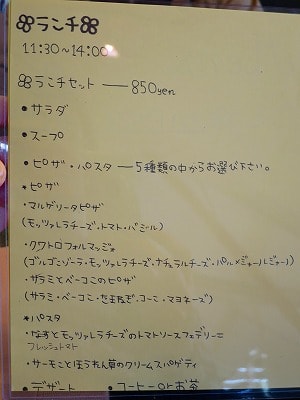 ランチ
11:30~14:00
ランチセット ── 850yen
●サラダ
●スープ
●ピザ・パスタ ── 5種類の中からお選び下さい。
*ピザ
・マルゲリータピザ
(モッツァレラチーズ・トマト・バジル)
・クワトロフォルマッジョ
(ゴルゴンゾーラ・モッツァレラチーズ・ナチュラルチーズ・パルメジャーノレジャーノ)
・サラミとベーコンのピザ
(サラミ・ベーコン・たまねぎ・コーン・マヨネーズ)
*パスタ
・なすとモッツァレラチーズのトマトソースフェデリーニ
フレッシュトマト
・サーモンとほうれん草のクリームスパゲティ
●デザート ●コーヒーorお茶